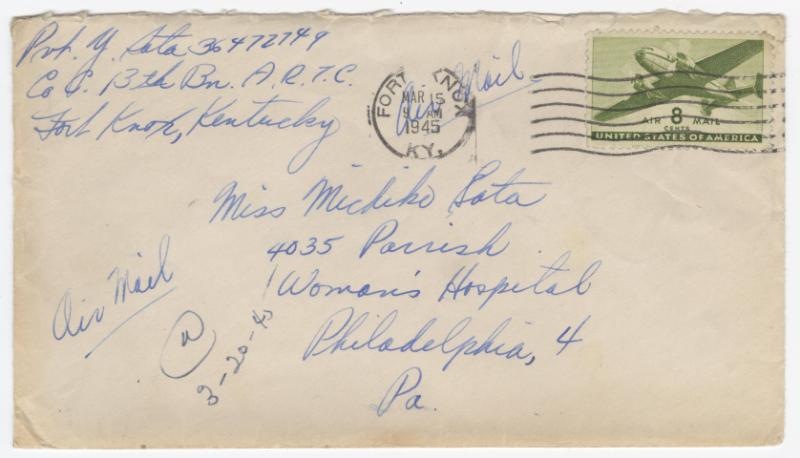 Pvt. Y. Sata 36472749
Co C. 13th Bn. A.R.T.C.
Fort Knox, Kentucky
Air Mail
FORT KNOX
MAR 15
9 AM
1945
KY.
AIR 8 MAIL
CENTS
UNITED STATES OF AMERICA
Miss Michiko Sata
4035 Parrish
Woman's Hospital
Philadelphia, 4
Pa.
Air Mail
3-20-45